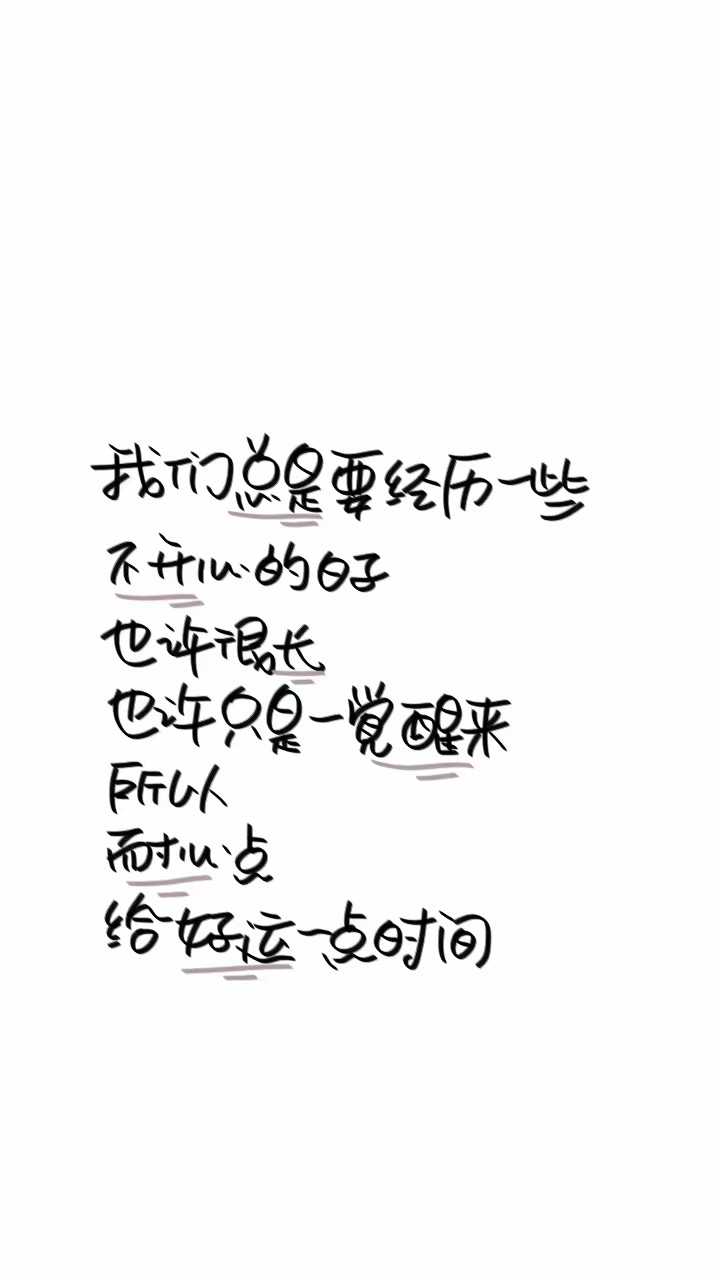 我们总是要经历一些
不开心的日子
也许很长
也许只是一觉醒来
所以
耐心点
给好运一点时间